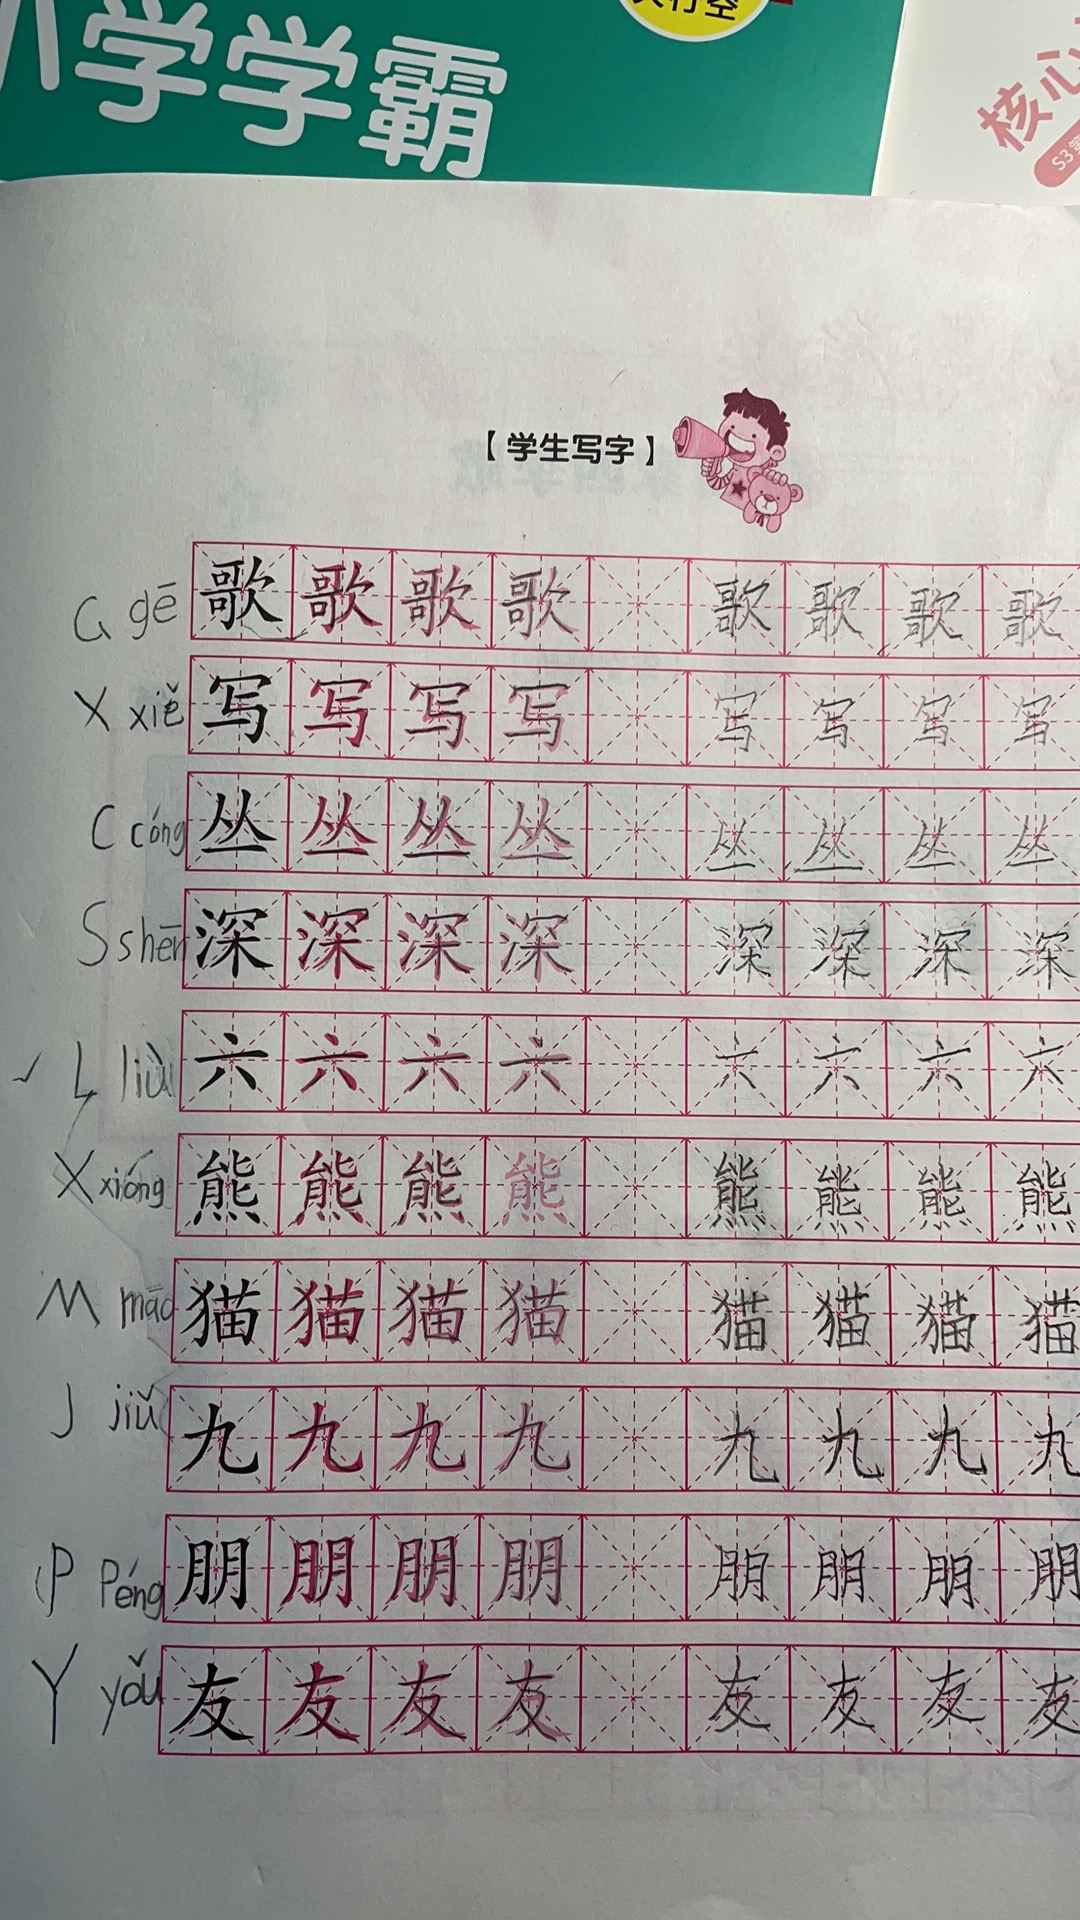 小学学霸
天行空
核心
S3第
【学生写字】
G gē 歌 歌 歌 歌 歌 歌 歌 歌
X xiě 写 写 写 写 写 写 写 写
C cóng 丛 丛 丛 丛 丛 丛 丛 丛
S shēn 深 深 深 深 深 深 深 深
L liù 六 六 六 六 六 六 六 六
X xióng 熊 熊 熊 熊 熊 熊 熊 熊
M māo 猫 猫 猫 猫 猫 猫 猫 猫
J jiǔ 九 九 九 九 九 九 九 九
P Péng 朋 朋 朋 朋 朋 朋 朋 朋
Y yǒu 友 友 友 友 友 友 友 友